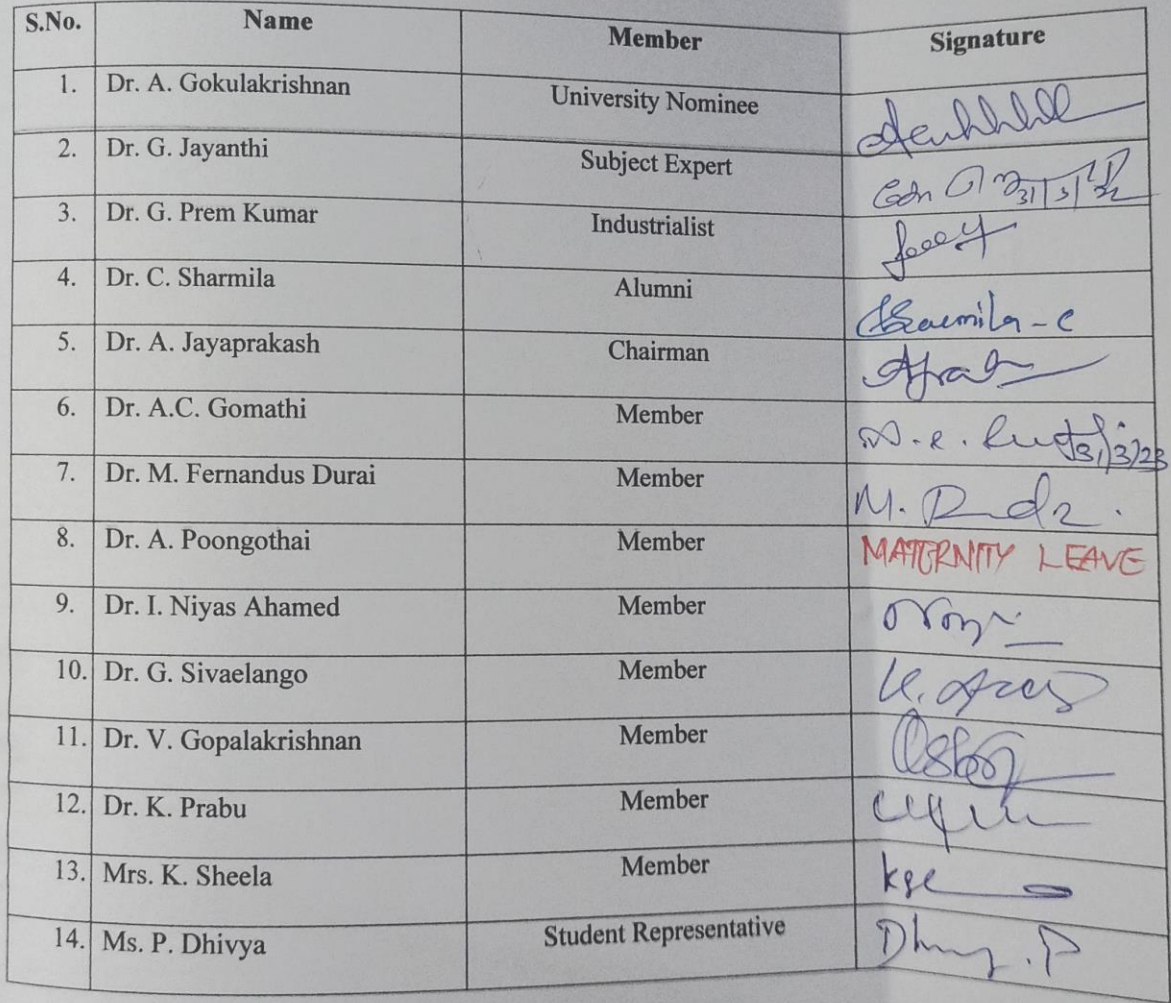 S.No. Name Member Signature
1. Dr. A. Gokulakrishnan University Nominee
2. Dr. G. Jayanthi Subject Expert
3. Dr. G. Prem Kumar Industrialist
4. Dr. C. Sharmila Alumni Sharmila - C
5. Dr. A. Jayaprakash Chairman
6. Dr. A.C. Gomathi Member 31/3/23
7. Dr. M. Fernandus Durai Member
8. Dr. A. Poongothai Member MATERNITY LEAVE
9. Dr. I. Niyas Ahamed Member
10. Dr. G. Sivaelango Member
11. Dr. V. Gopalakrishnan Member
12. Dr. K. Prabu Member
13. Mrs. K. Sheela Member
14. Ms. P. Dhivya Student Representative